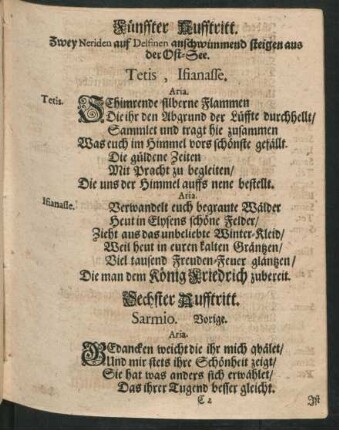 Fünffter Aufftritt.
Zwey Neriden auf Delfinen anschwimmend steigen aus
der Ost-See.
Tetis, Ifianasse.
Aria.
Tetis. SChimrende silberne Flammen
Die ihr den Abgrund der Lüffte durchhellt/
Sammlet und tragt hie zusammen
Was euch im Himmel vors schönste gefällt.
Die güldene Zeiten
Mit Pracht zu begleiten/
Die uns der Himmel auffs neue bestellt.
Aria.
Ifianasse. Verwandelt euch begraute Wälder
Heut in Elysens schöne Felder/
Zieht aus das unbeliebte Winter-Kleid/
Weil heut in euren kalten Gräntzen/
Viel tausend Freuden-Feuer gläntzen/
Die man dem König Friedrich zubereit.
Sechster Aufftritt.
Sarmio. Vorige.
Aria.
GEdancken weicht die ihr mich qvälet/
Und mir stets ihre Schönheit zeigt/
Sie hat was anders sich erwählet/
Das ihrer Tugend besser gleicht.
C 2 Ist